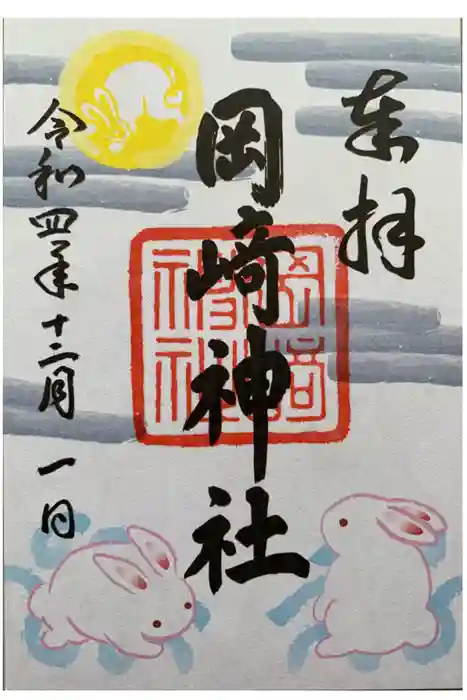 奉拝
岡崎神社
岡崎神社
令和四年十二月一日